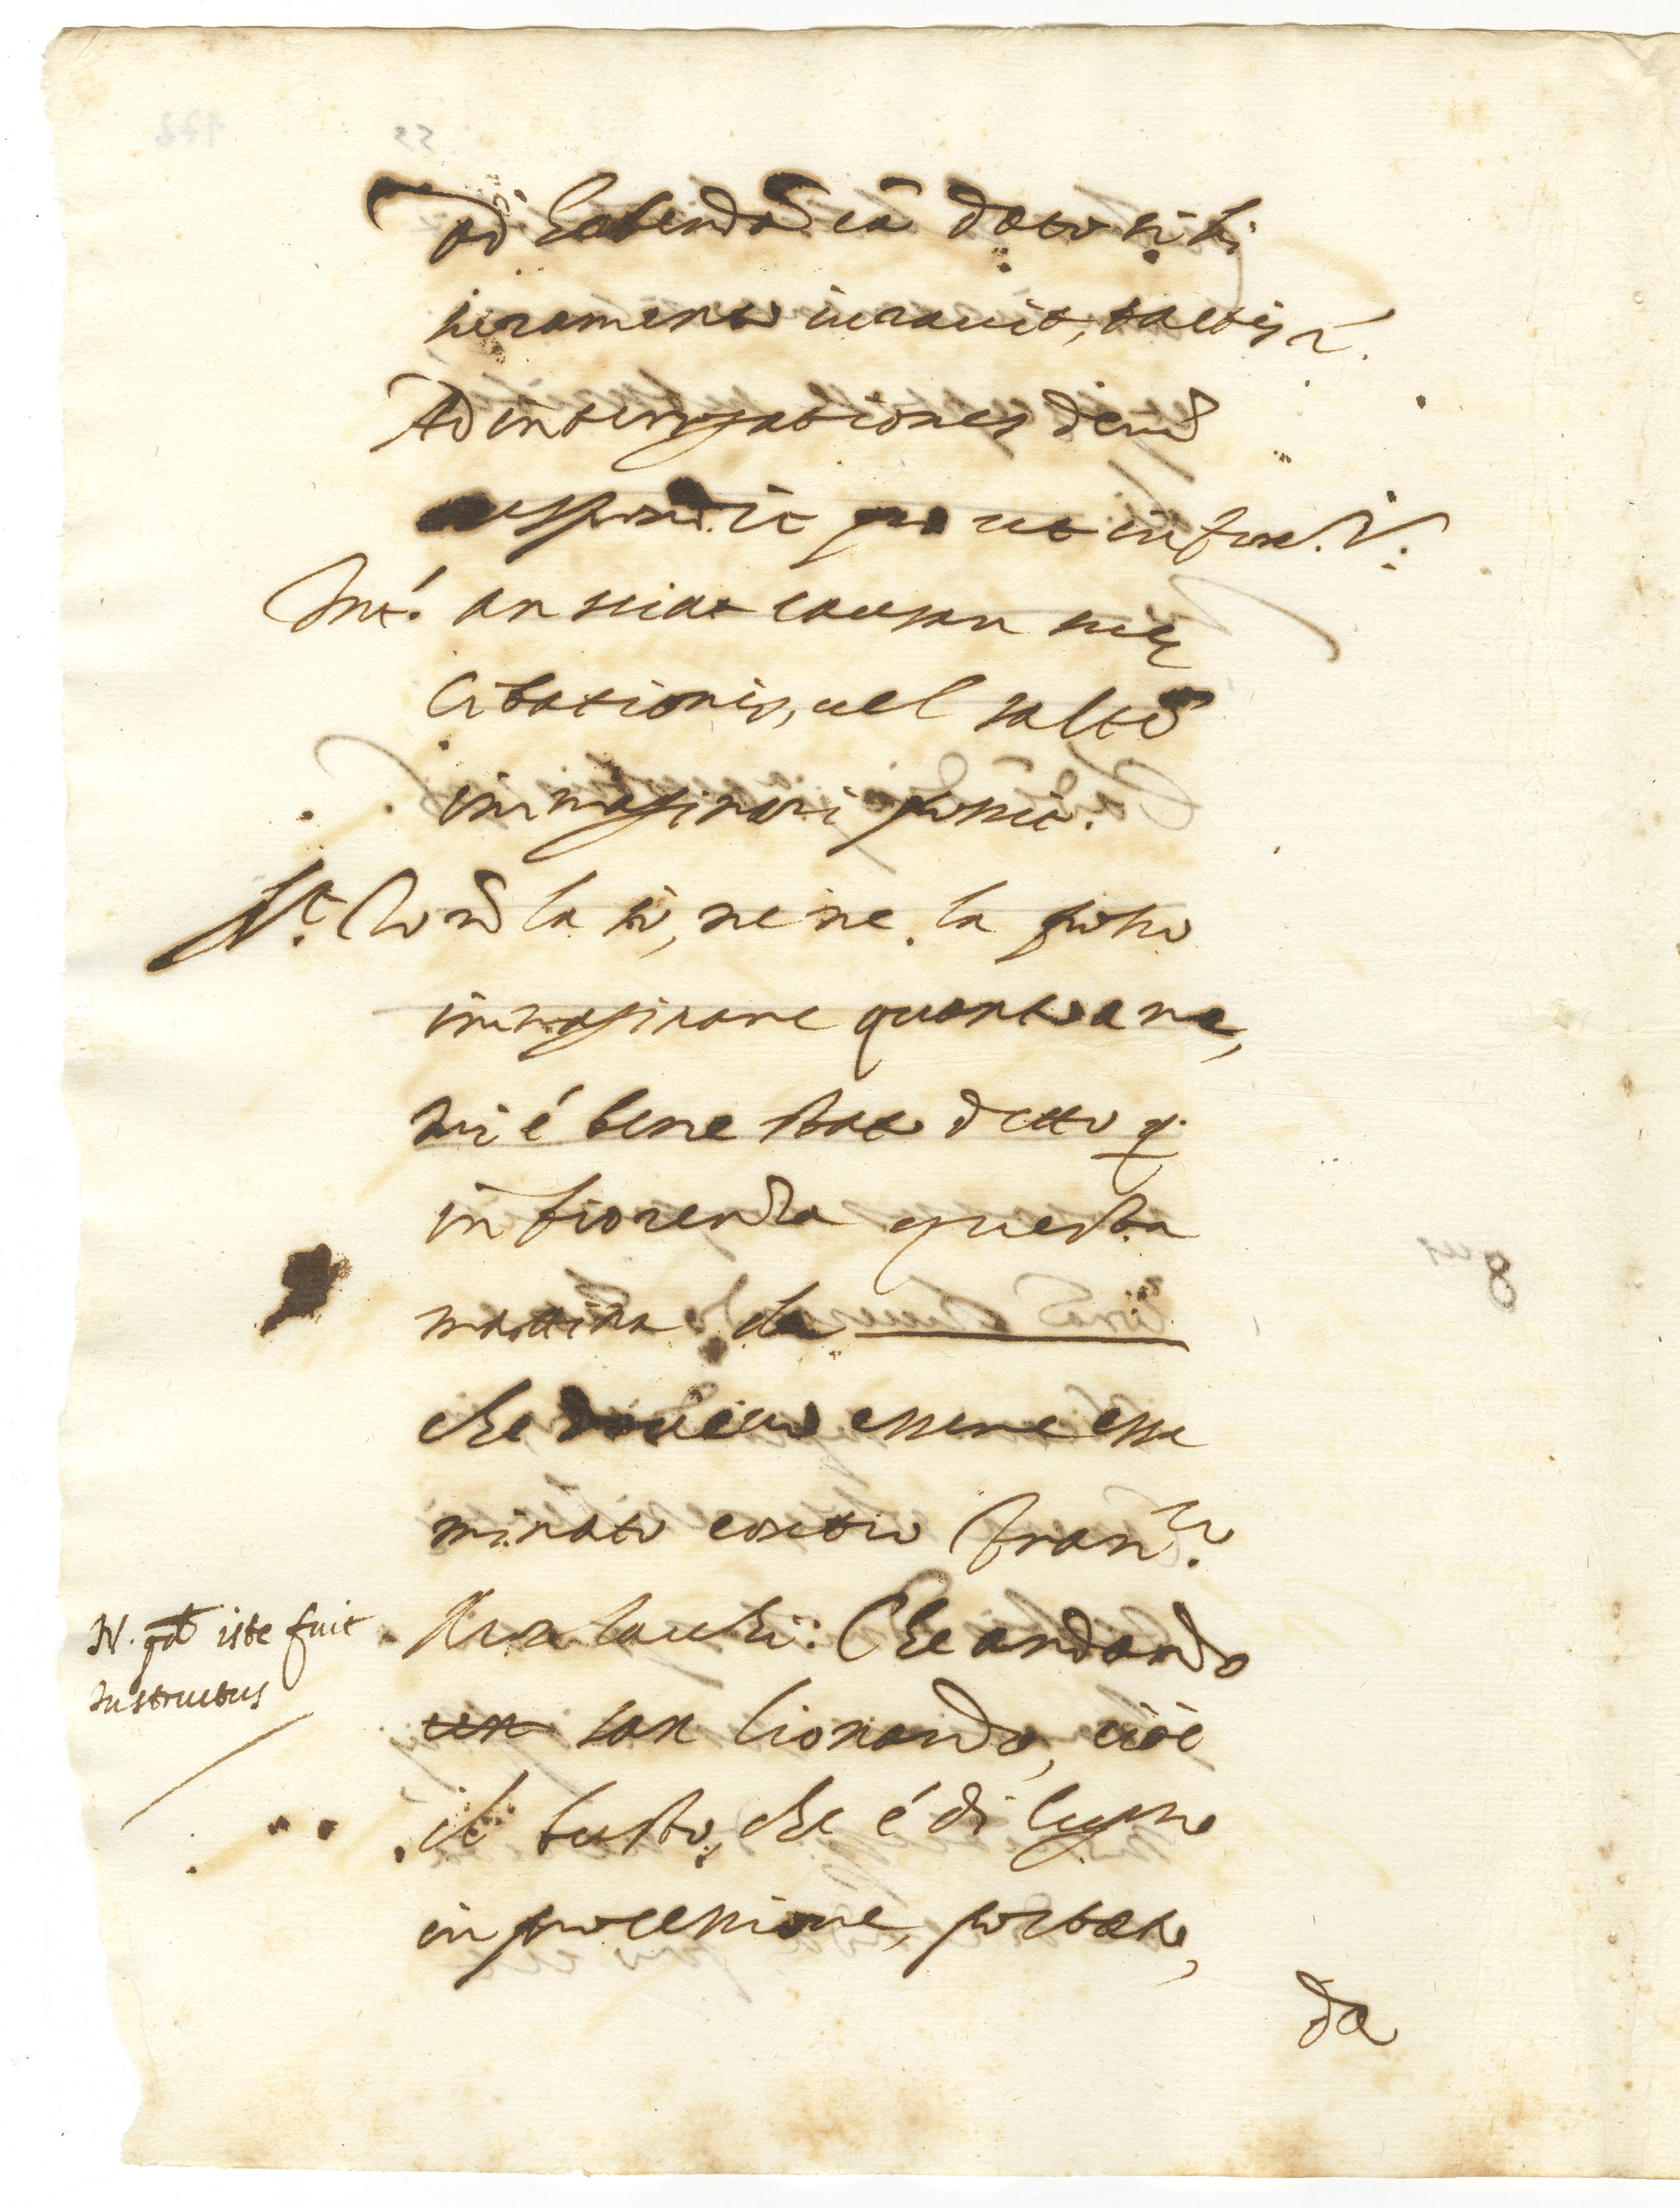 ad habendã cã dato sibi
iuramento iurauit, tactis
Ad interrogationes D. mei
respondit pro ut infra. V.
Int. an sciat causam sue
Citationis, uel saltẽ
immaginari possit.
Rt. Io nõ la so, ne me la posso
immaginare quanto a me,
mi é bene stato detto
in fiorenza questa
mattina da
che doueuo essere essa
minato contro Fran.co
Malauchi: Che andando
san Lionardo, cioè
il busto, che é di legno
in processione, portato,
da
N. qd iste fuit
instructus